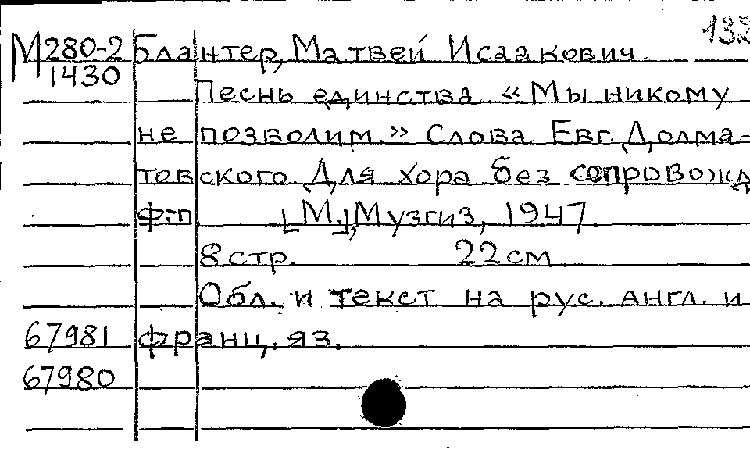 М 280-2 Блантер, Матвей Исаакович
1430
Песнь единства «Мы никому
не позволим.» Слова Евг. Долма-
товского. Для хора без сопровожд
ф-п [М.], Музгиз, 1947
8 стр. 22 см
Обл. и текст на рус. англ. и
67981 франц. яз.
67980